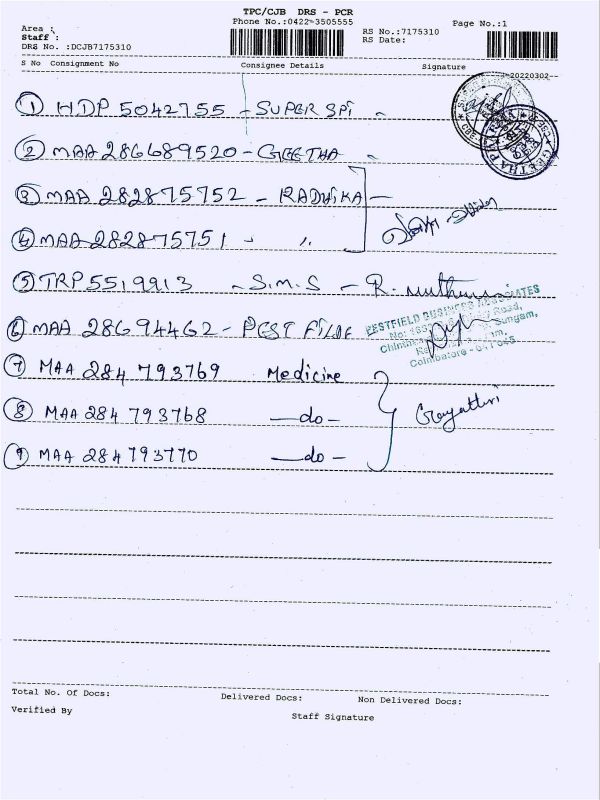 TPC/CJB DRS - PCR
Phone No.:0422-3505555
Page No.:1
Area :
Staff :
DRS No. :DCJB7175310
RS No.:7175310
RS Date:
S No Consignment No Consignee Details Signature
20220302
1 HDP 5042755 - SUPER SPI "
2 MAA 286689520 - GEETHA "
3 MAA 282875752 - RADHIKA -
4 MAA 282875751 - "
5 TRP 5519913 - S.M.S - R.
6 MAA 28694462 - PEST
BUSINESS
Road,
Sungam,
Coimbatore - 641 045
7 MAA 284 793769 Medicine
8 MAA 284 793768 - do -
Gayathri
9 MAA 284 793770 - do -
Total No. Of Docs: Delivered Docs: Non Delivered Docs:
Verified By Staff Signature